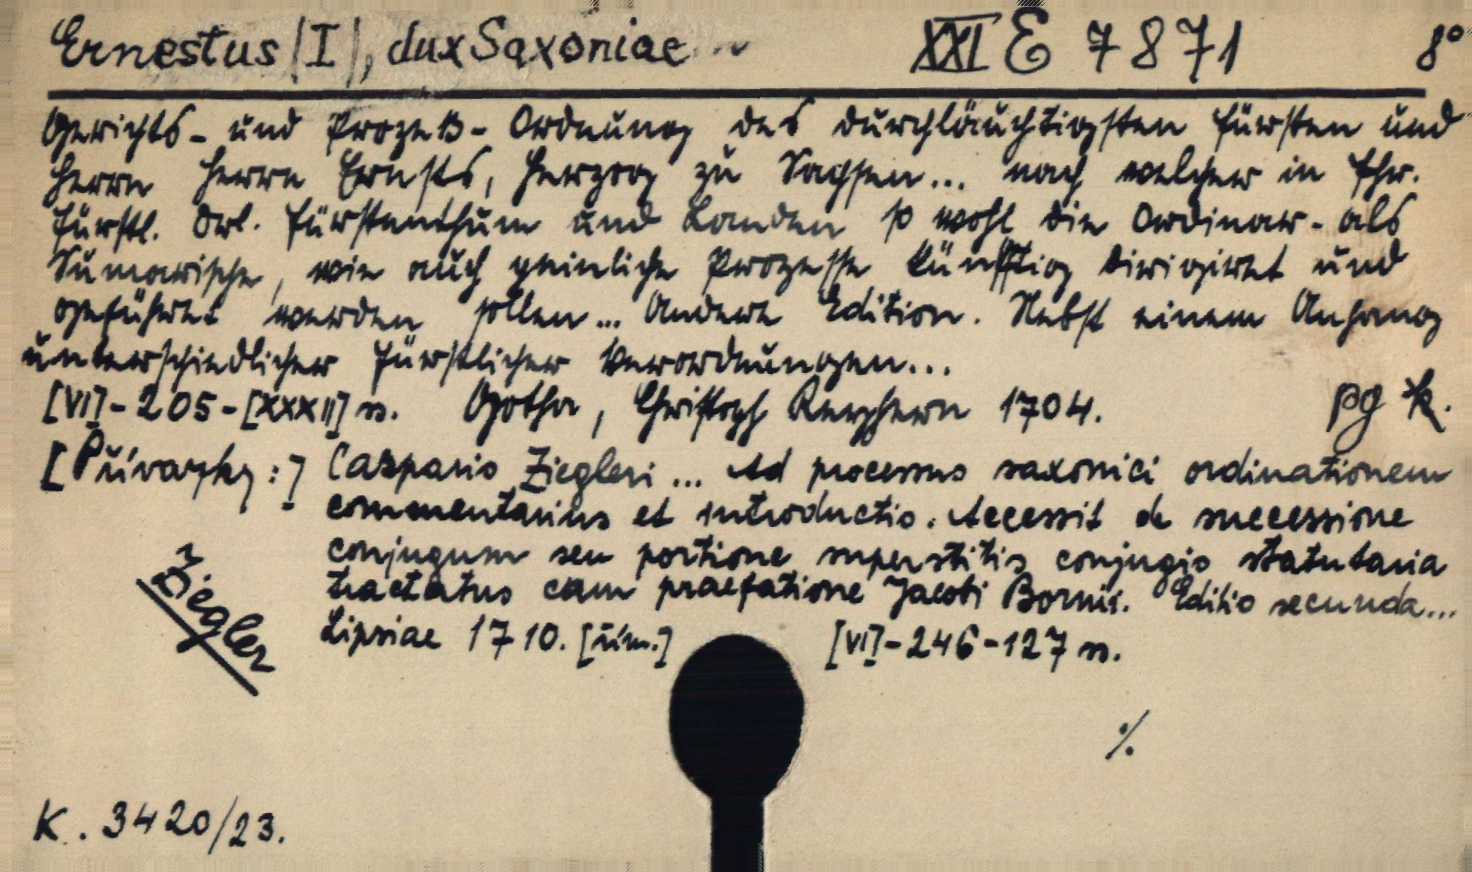 Ernestus /I/, dux Saxoniae XXI E 7871 8°
Gerichts- und Prozeß-Ordnung des durchläuchtigsten Fürsten und
Herrn Herrn Ernsts, Herzog zu Sachsen... nach welcher in Ihr.
Fürstl. Drl. Fürstenthum und Landen so wohl die Ordinar- als
Sumarische, wie auch peinliche Prozesse künfftig dirigiret und
geführet werden sollen... Andere Edition. Nebst einem Anhang
unterschiedlicher Fürstlicher Verordnungen...
[VI]-205-[XXXII] s. Gotha, Christoph Reyhern 1704. pg
[Přívazky:] Casparis Ziegleri ... Ad processus saxonici ordinationem
commentarius et introductio. Accessit de successione
conjugum seu portione superstitis conjugis statutaria
tractatus cum praefatione Jacobi Bornis. Editio secunda...
Ziegler
Lipsiae 1710. [tím.] [VI]-246-127 s.
%
K. 3420/23.